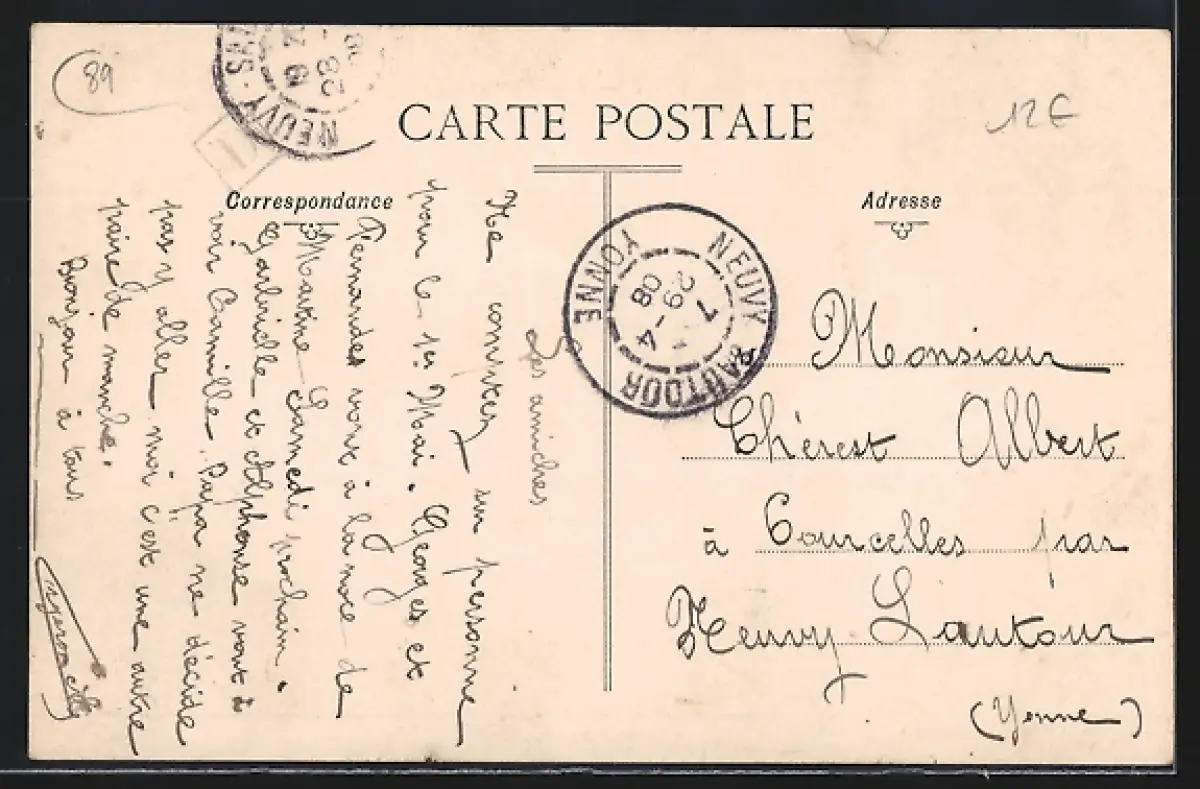 89
NEUVY-S
28
CARTE POSTALE
12 €
Correspondance
Adresse
NEUVY SAUTOUR
YONNE
7
29-4
08
Les amiches
Ne comptez sur personne
pour le 1er Mai. Georges et
Fernandes vont à la noce de
Martine Samedi prochain.
Gabrielle et Alphonse vont à
voir Camille. Papa ne décide
pas y aller, moi c'est une autre
paire de manche.
Bonjour à tous
Monsieur
Thérest Albert
à Courcelles par
Neuvy-Sautour
(Yonne)